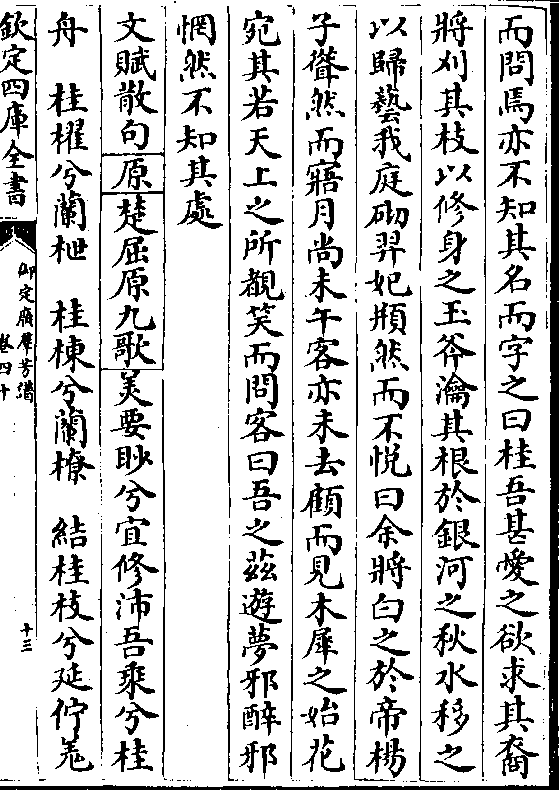 而問焉亦不知其名而字之曰桂吾甚愛之欲求其裔
將刈其枝以修身之玉斧瀹其根於銀河之秋水移之
以歸藝我庭砌羿妃頩然而不悅曰余將白之於帝楊
子聳然而寤月尚未午客亦未去顧而見木犀之始花
宛其若天上之所覩笑而問客曰吾之茲遊夢邪醉邪
惘然不知其處
文賦散句原楚屈原九歌美要眇兮宜修沛吾乘兮桂
舟 桂櫂兮蘭枻 桂棟兮蘭橑 結桂枝兮延佇羗
欽定四庫全書
御定廣羣芳譜
卷四十
十三